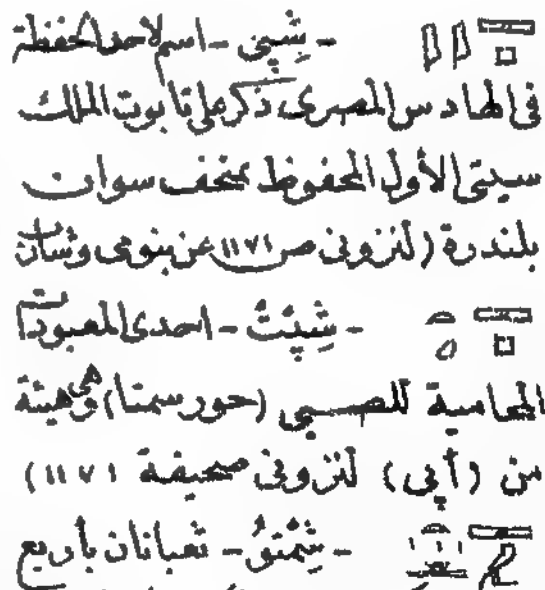 - شِپِى - اسم لأحد الحفظة
فى الهادس المصرى ذكر على تابوت الملك
سيتى الأول المحفوظ بمتحف سوان
بلندرة (لنزونى ص ١١٧١ عن بنومى وشاب
- شِپِتُ - احدى المعبودات
الحامية للصبى (حور سمتا) وهى هيئة
من (أپى) لنزونى صحيفة ١١٧١)
- شِمْتىُ - ثعبانان بأربع